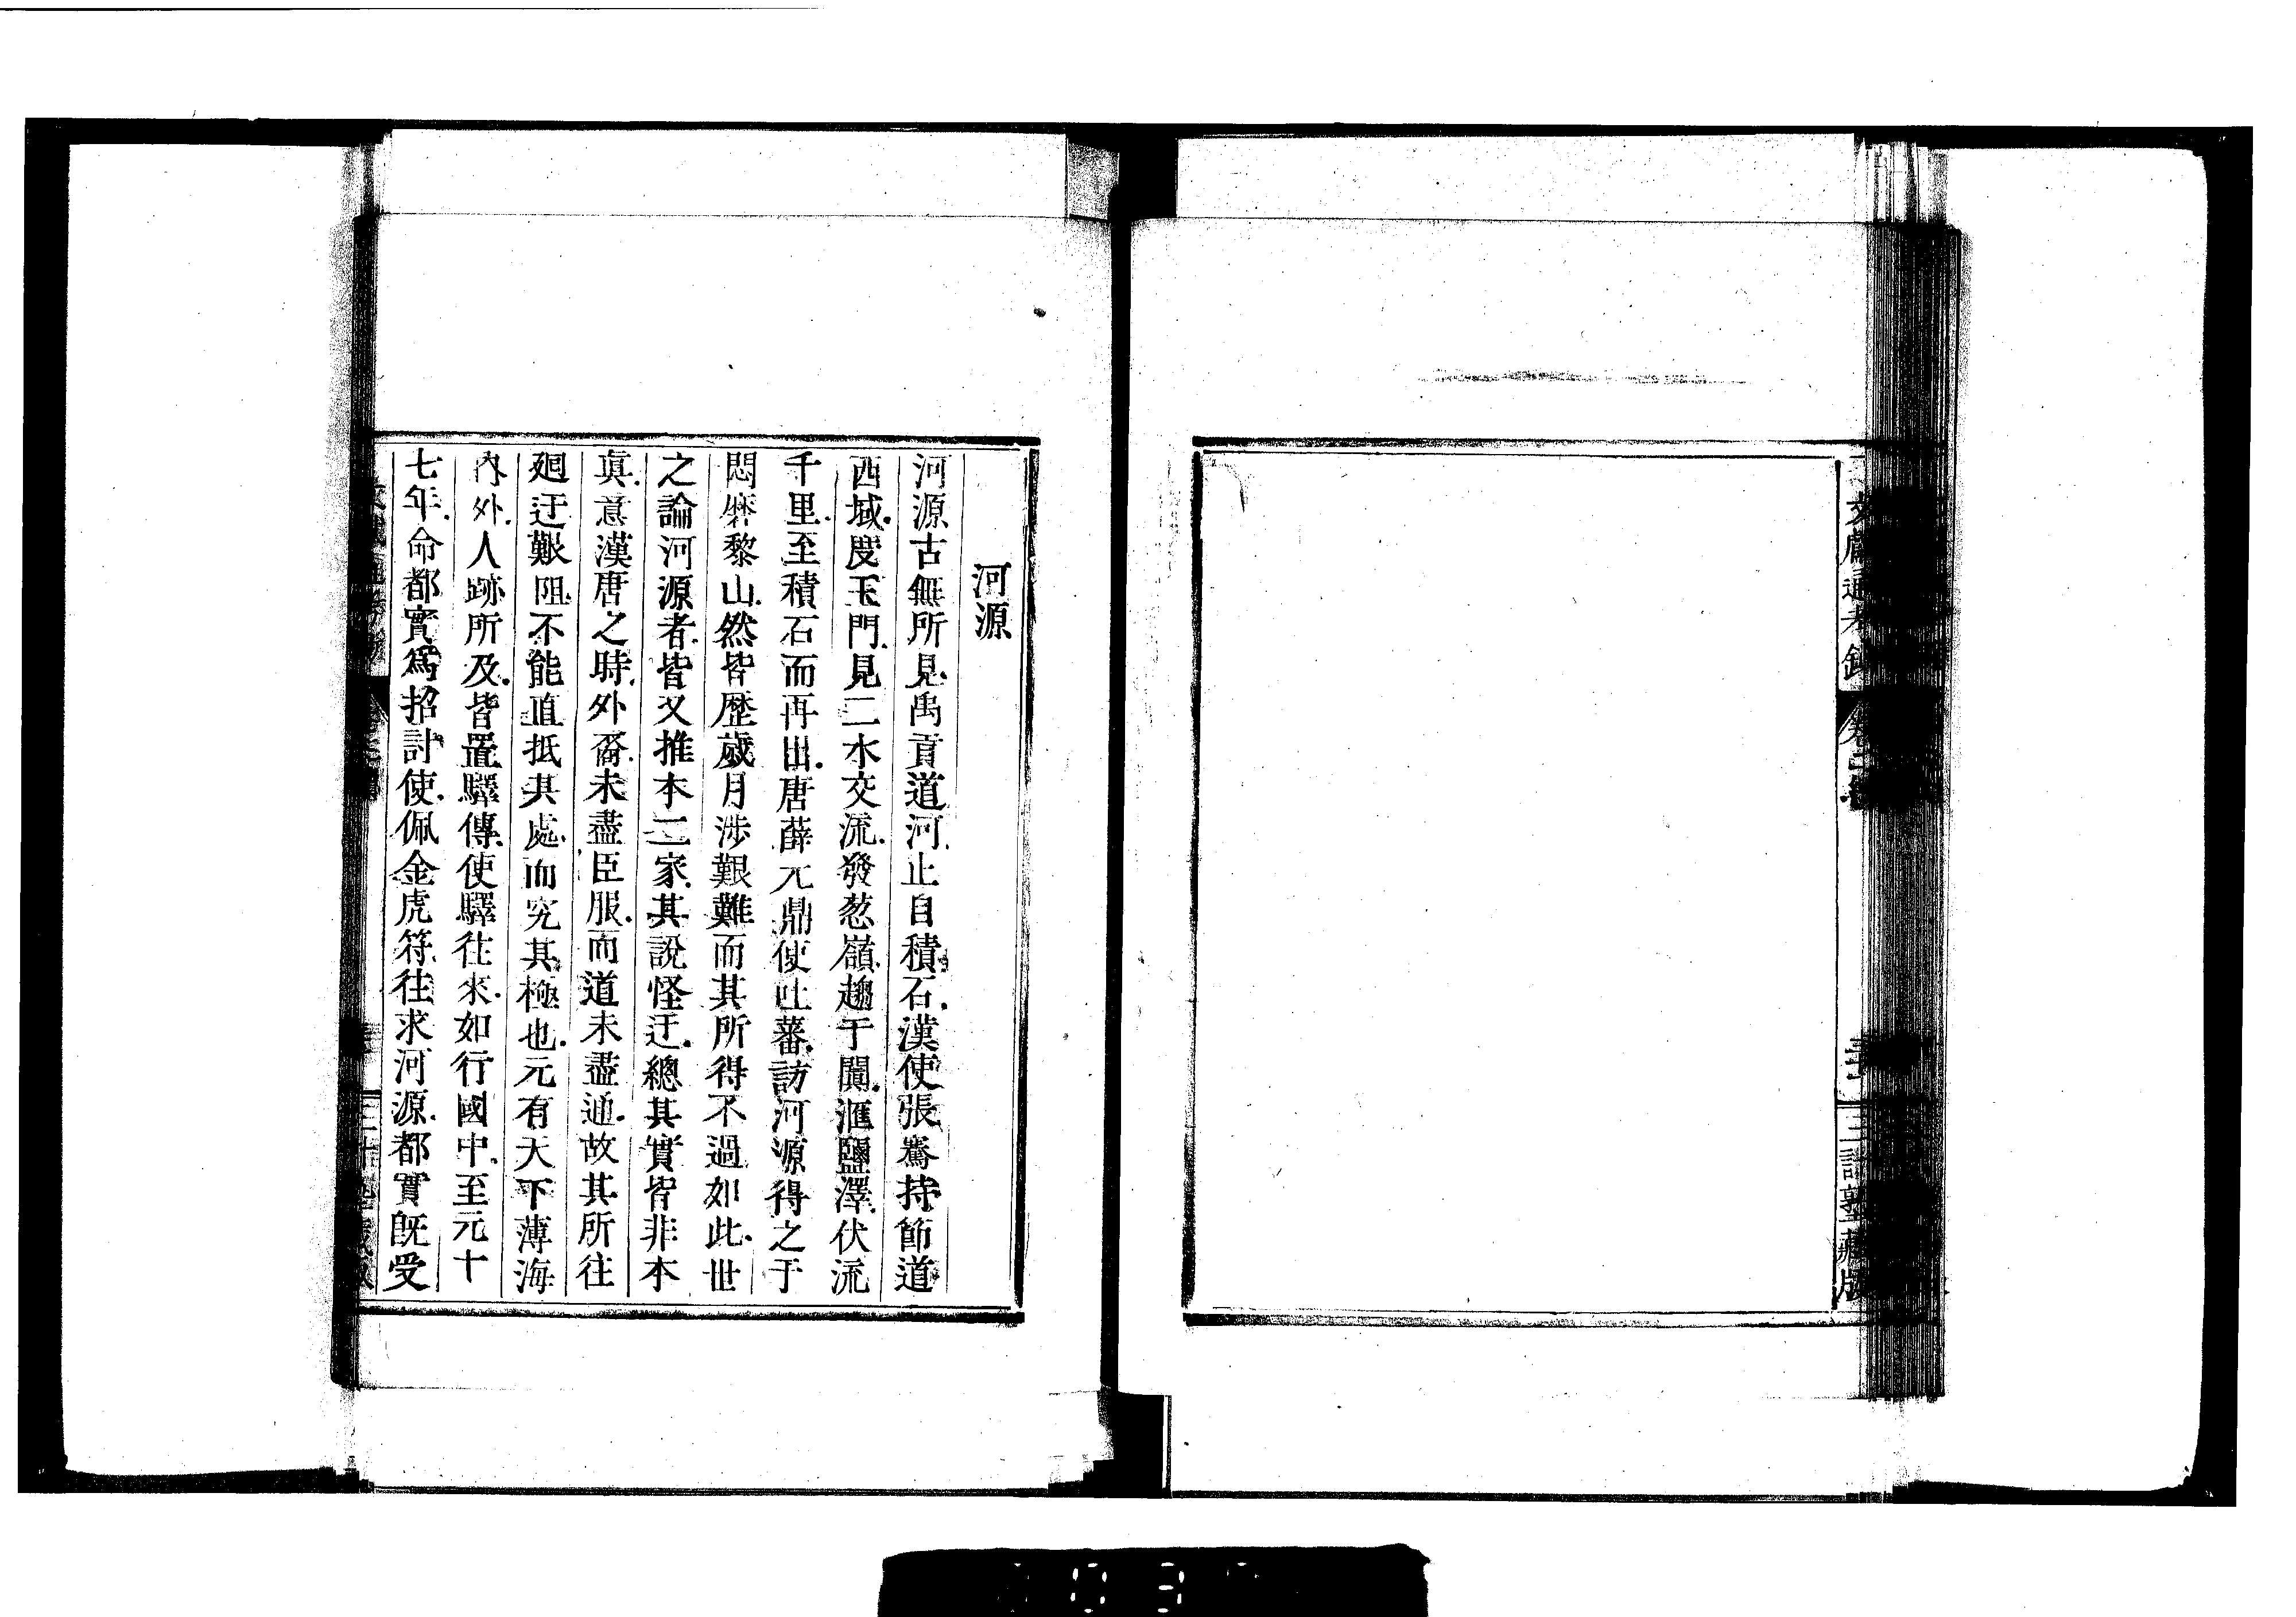 文獻通考鈔
三訂塾藏版
河源
河源古無所見禹貢道河止自積石漢使張騫持節道
西域度玉門見二水交流發葱嶺趨于闐滙鹽澤伏流
千里至積石而再出唐薛元鼎使吐蕃訪河源得之于
悶磨黎山然皆歷歲月涉艱難而其所得不過如此世
之論河源者皆又推本二家其說怪迂總其實皆非本
眞意漢唐之時外裔未盡臣服而道未盡通故其所往
廻迂艱阻不能直抵其處而究其極也元有天下薄海
內外人跡所及皆置驛傳使驛往來如行國中至元十
七年命都實爲招討使佩金虎符往求河源都實旣受